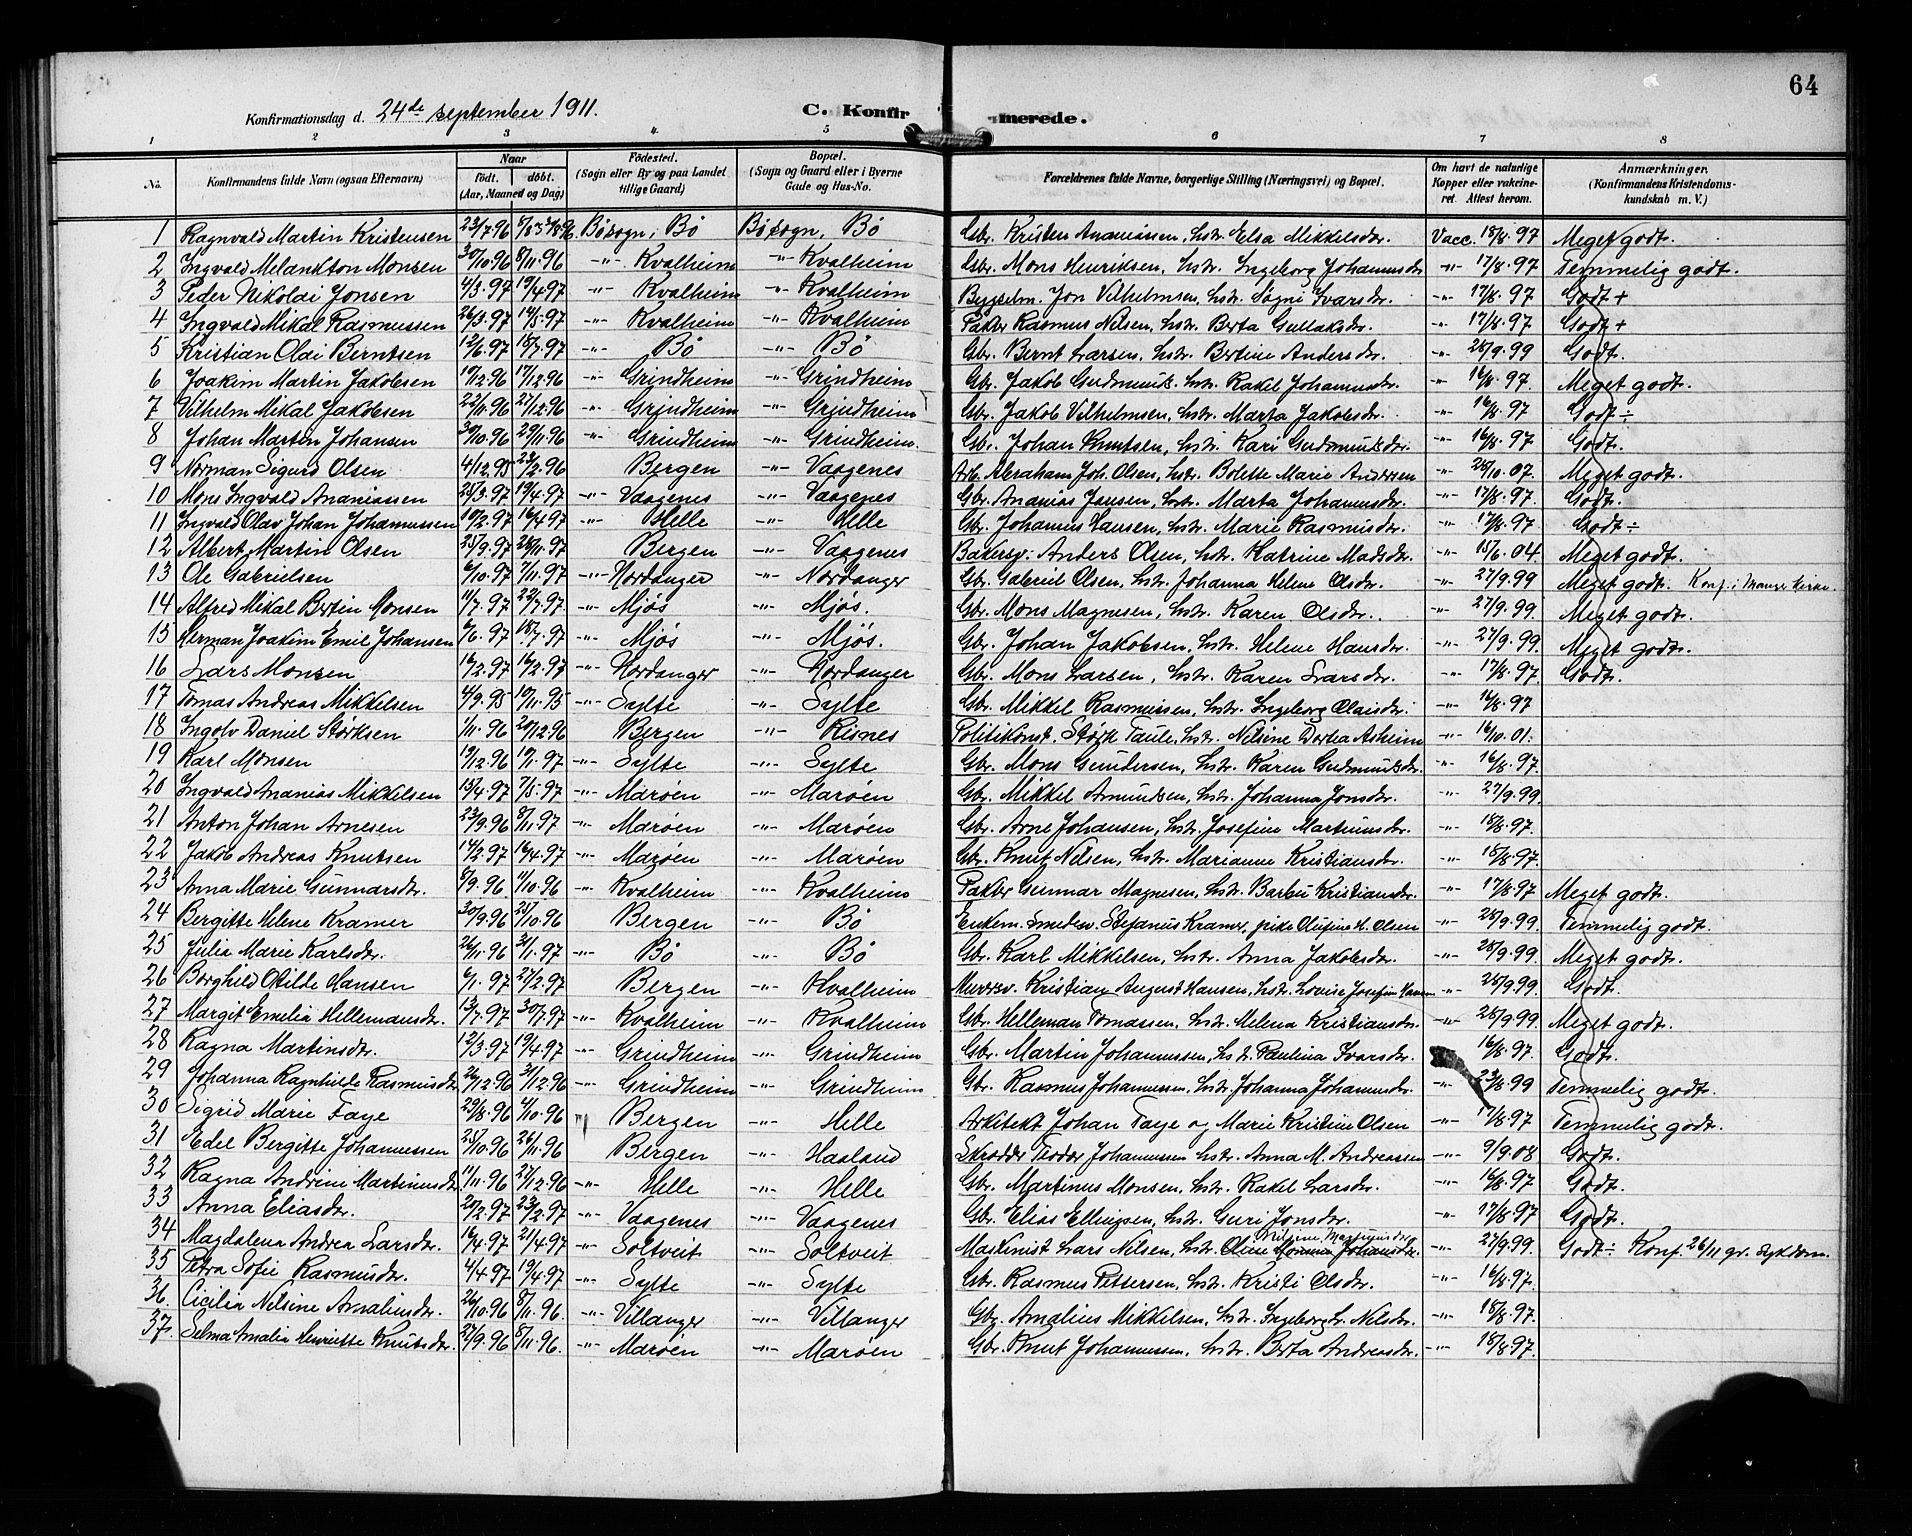 64
Konfirmationsdag d. 24de september 1911. C. Konfirmerede.
1 2 3 4 5 6 7 8
No. Konfirmandens fulde Navn (ogsaa Efternavn) Naar født. døbt. (Aar, Maaned og Dag) Fødested. (Sogn eller By og paa Landet tillige Gaard) Bopæl. (Sogn og Gaard eller i Byerne Gade og Hus-No. Forældrenes fulde Navne, borgerlige Stilling (Næringsvei) og Bopæl. Om havt de naturlige Kopper eller vakcineret. Attest herom. Anmærkninger. (Konfirmandens Kristendomskundskab m. V.)
1 Ragnvald Martin Kristensen 23/7 96 Bøsogn, Bø Bøsogn, Bø Gbr. Kristen Ananiassen, hstr. Elsa Mikkelsdr. Vacc. 18/8. 97 Meget godt.
2 Ingvald Melankton Monsen 30/10 96 8/11. 96 -"- Kvalheim -"- Kvalheim Gbr. Mons Henriksen, hstr. Ingeborg Johannesdr -"- 17/8. 97 Temmelig godt.
3 Peder Nikolai Jonsen 4/3. 97 19/4 97 -"- Kvalheim -"- Kvalheim Bygselm. Jon Vilhelmsen, hstr. Søgni Ivarsdr. -"- 17/8. 97 Godt +
4 Ingvald Mikal Rasmussen 26/3. 97 14/5. 97 -"- Kvalheim -"- Kvalheim Pakbr Rasmus Nilsen, hstr. Berta Gullaksdr. -"- 17/8. 97 Godt +
5 Kristian Olai Berntsen 12/6. 97 18/7. 97 -"- Bø -"- Bø Gbr. Bernt Larsen, hstr. Bertine Andersdr. -"- 28/9. 99 Godt.
6 Joakim Martin Jakobsen 10/12 96 17/12 96 -"- Grindheim -"- Grindheim Gbr. Jakob Gudmunds. hstr. Rakel Johannesdr. -"- 16/8. 97. Meget godt.
7 Vilhelm Mikal Jakobsen 22/11. 96 27/12 96 -"- Grindheim -"- Grindheim Gbr. Jakob Vilhelmsen, hstr. Marta Jakobsdr. -"- 16/8. 97 Godt ÷
8 Johan Martin Johansen 30/10. 96 29/11. 96 -"- Grindheim -"- Grindheim. Gbr. Johan Knutsen, hstr. Kari Gudmundsdr. -"- 16/8. 97 Godt.
9 Norman Sigurd Olsen 4/12. 95 23/2. 96 Bergen -"- Vaagenes Arb. Abraham Joh. Olsen, hstr. Bolette Marie Andersen -"- 28/10. 07. Meget godt.
10 Mons Ingvald Ananiassen 25/3. 97 19/4. 97 -"- Vaagenes -"- Vaagenes Gbr. Ananias Jansen, hstr. Marta Johannesdr. -"- 17/8. 97. Godt.
11 Ingvald Olav Johan Johannessen 10/2. 97 16/4 97 -"- Helle -"- Helle Gbr. Johannes Hansen, hstr. Marie Rasmusdr. -"- 17/8. 97. Godt ÷
12 Albert Martin Olsen 25/9. 97 28/11. 97 Bergen -"- Vaagenes Bakersv. Anders Olsen, hstr. Katrine Madsdr. -"- 15/6. 04. Meget godt.
13 Ole Gabrielsen 6/10. 97 7/11. 97 -"- Nordanger -"- Nordanger Gbr. Gabriel Olsen, hstr. Johanna Helene Olsdr. -"- 27/9. 99 Meget godt. Konf. i Manger Kirke.
14 Alfred Mikal Bertin Monsen 11/7. 97 22/7. 97 -"- Mjøs -"- Mjøs. Gbr. Mons Magnesen, hstr. Karen Olsdr. -"- 27/9. 99. Meget godt.
15 Herman Joakim Emil Johansen 6/6. 97 18/7. 97 -"- Mjøs -"- Mjøs. Gbr. Johan Jakobsen, hstr. Helene Hansdr. -"- 27/9. 99. Meget godt.
16 Lars Monsen 16/2. 97 16/2. 97 -"- Nordanger -"- Nordanger Gbr. Mons Larsen, hstr. Karen Larsdr. -"- 17/8. 97. Godt.
17 Tomas Andreas Mikkelsen 4/9. 95 10/11. 95 -"- Sylte -"- Sylte Gbr. Mikkel Rasmussen, hstr. Ingeborg Olaisdr. -"- 16/8. 97
18 Ingolv Daniel Størksen 1/11. 96 20/12 96 Bergen -"- Risnes Politikonst. Størk Taule, hstr. Nilsine Dortea Asheim -"- 16/10. 01.
19 Karl Monsen 19/12. 96 17/1. 97 -"- Sylte -"- Sylte Gbr. Mons Gundersen, hstr. Karen Gudmundsdr. -"- 16/8. 97.
20 Ingvald Ananias Mikkelsen 15/4. 97 7/5. 97 -"- Marøen -"- Marøen Gbr. Mikkel Amundsen, hstr. Johanna Jonsdr. -"- 27/9. 99.
21 Anton Johan Arnesen 23/9. 96 8/11. 97 -"- Marøen -"- Marøen Gbr. Arne Johansen, hstr. Josefine Martinusdr. -"- 18/8. 97.
22 Jakob Andreas Knutsen 14/2. 97 16/4. 97 -"- Marøen -"- Marøen Gbr. Knut Nilsen, hstr. Marianne Kristiansdr. -"- 18/8. 97.
23 Anna Marie Gunnarsdr. 8/9. 96. 11/10. 96 -"- Kvalheim -"- Kvalheim Pakbr Gunnar Magnesen, hstr. Barbu Kristiansdr -"- 17/8. 97 Meget godt.
24 Bergitte Helene Kramer 30/9. 96 25/10. 96 Bergen -"- Bø Enkem. Smedesv. Stefanus Kramer, pike Olufine H. Olsen -"- 28/9. 99. Temmelig godt.
25 Julia Marie Karlsdr. 26/11. 96 31/1. 97 -"- Bø -"- Bø Gbr. Karl Mikkelsen, hstr. Anna Jakobsdr. -"- 28/9. 99. Meget godt.
26 Borghild Otilde Hansen 6/1. 97 27/2. 97 Bergen -"- Kvalheim Murersv. Kristian August Hansen, hstr. Lovise Josefine Hansen -"- 28/9. 99. Godt.
27 Margit Emilia Hellemansdr. 13/7. 97 30/7. 97 -"- Kvalheim -"- Kvalheim Gbr. Helleman Tomassen, hstr. Melena Kristiansdr. -"- 28/9. 99 Meget godt.
28 Ragna Martinsdr. 12/3. 97 19/4. 97 -"- Grindheim -"- Grindheim Gbr. Martin Johannessen, hstr. Paulina Ivarsdr. 16/8. 97. Godt.
29 Johanna Ragnhilde Rasmusdr 26/12. 96 31/12. 96 -"- Grindheim -"- Grindheim Gbr. Rasmus Johannessen, hstr. Johanna Johannesdr. -"- 23/8. 99 Temmelig godt.
30 Sigrid Marie Faye 23/8. 96 4/10. 96 Bergen -"- Helle Arkitekt Johan Faye og Marie Kristine Olsen 17/8. 97 Temmelig godt.
31 Edel Bergitte Johannessen 25/10. 96 26/11. 96 Bergen -"- Haaland Skrædder Teodor Johannessen hstr. Anna M. Andreassen -"- 9/9. 08 Godt.
32 Ragna Andrine Martinusdr. 11/11. 96 27/12. 96 -"- Helle -"- Helle Gbr. Martinus Monsen, hstr. Rakel Larsdr. -"- 16/8. 97 Godt.
33 Anna Eliasdr. 20/2. 97 23/2. 97 -"- Vaagenes -"- Vaagenes Gbr. Elias Ellingsen, hstr. Guri Jonsdr. -"- 17/8. 97 Godt.
34 Magdalena Andrea Larsdr. 16/4. 97 21/4. 97 -"- Soltveit -"- Soltveit Maskinist Lars Nilsen, hstr. Johansdr. -"- 27/9. 99. Godt ÷ Konf. 26/11 gr. sykdom.
35 Petra Sofie Rasmusdr. 4/4. 97 19/4. 97 -"- Sylte -"- Sylte Gbr. Rasmus Pettersen, hstr. Kristi Olsdr. -"- 16/8. 97.
36. Cicilia Nilsine Amaliusdr. 26/10. 96 8/11. 96. -"- Villanger -"- Villanger Gbr. Amalius Mikkelsen, hstr. Ingeborg L. Nilsdr. -"- 18/8. 97.
37. Selma Amalia Henriette Knutsdr. 27/9. 96 8/11. 96. -"- Marøen -"- Marøen Gbr. Knut Johannessen, hstr. Berta Andreasdr. -"- 18/8. 97.